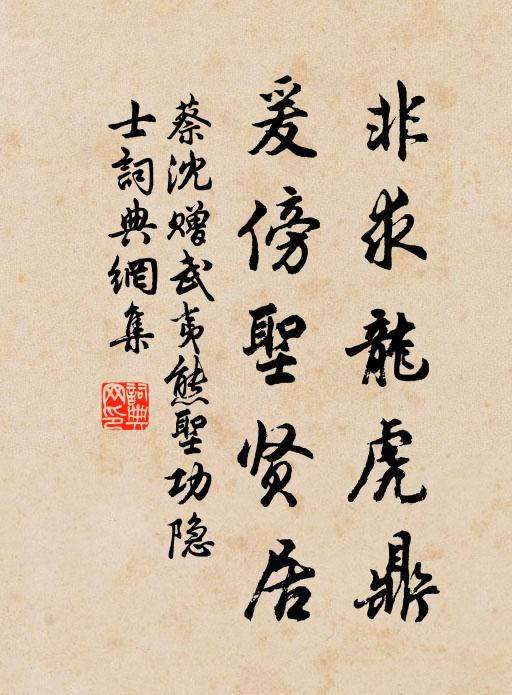 非求龍虎鼎
爰傍聖贤居
蔡沈赠武夷熊聖功隐
士詞典網集
詞典网印